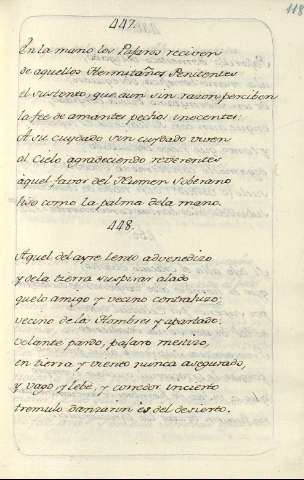 118
447.
En la mano los Pajaros reciven
de aquellos Hermitañes Penitentes
el sustento, que aun sin razon perciben
la fee de amantes pechos inocentes:
A su cuydado sin cuydado viven
al Cielo agradeciendo reverentes
aquel favor del Numen Soberano
liso como la palma dela mano.
448.
Aquel del ayre lento advenedizo
y dela tierra suspirar alado
quelo amigo y vecino contrahizo
vecino de los Hombres y apartado:
volante pardo, pajaro mestizo,
en tierra y viento nunca asegurado,
y vago, y lebe, y corredor incierto
tremulo danzarin es del desierto.